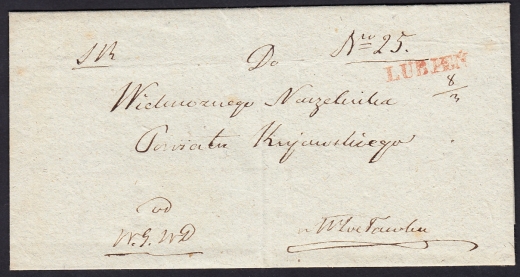 SR
Nro 25.
Do
LUBIEN
8/3
Wielmożnego Naczelnika
Powiatu Kujawskiego
od
W.G.WD
w Włocławku